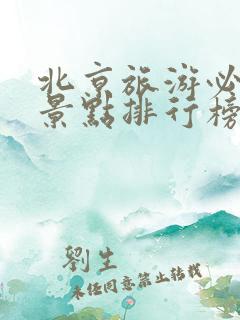 北京旅游必
景點排行榜
劉生
未经同意禁止转载